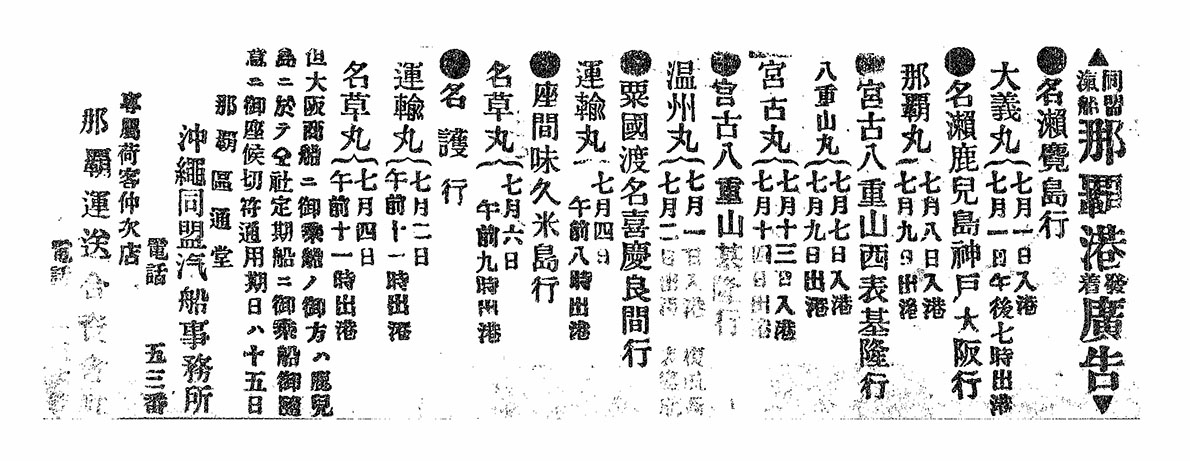 ▲同盟滊船那覇港發着廣告▼
●名瀬鹿島行
大義丸 七月一日入港
七月一日午後七時出港
●名瀬鹿兒島神戸大阪行
那覇丸 七月八日入港
七月九日出港
●宮古八重山西表基隆行
八重山丸 七月七日入港
七月九日出港
宮古丸 七月十三日入港
七月十四日出港
●宮古八重山基隆行
温州丸 七月一日入港
七月二日出港
●粟國渡名喜慶良間行
運輸丸 七月四日
午前八時出港
●座間味久米島行
名草丸 七月六日
午前九時出港
●名護行
運輸丸 七月二日
午前十一時出港
名草丸 七月四日
午前十一時出港
但大阪商船ニ御乘船ノ御方ハ鹿兒
島ニ於テ仝社定期船ニ御乘船御隨
意ニ御座候切符通用期日ハ十五日
那覇區通堂
沖繩同盟汽船事務所
電話 五三番
專屬荷客仲次店
那覇運送合資會社
電話